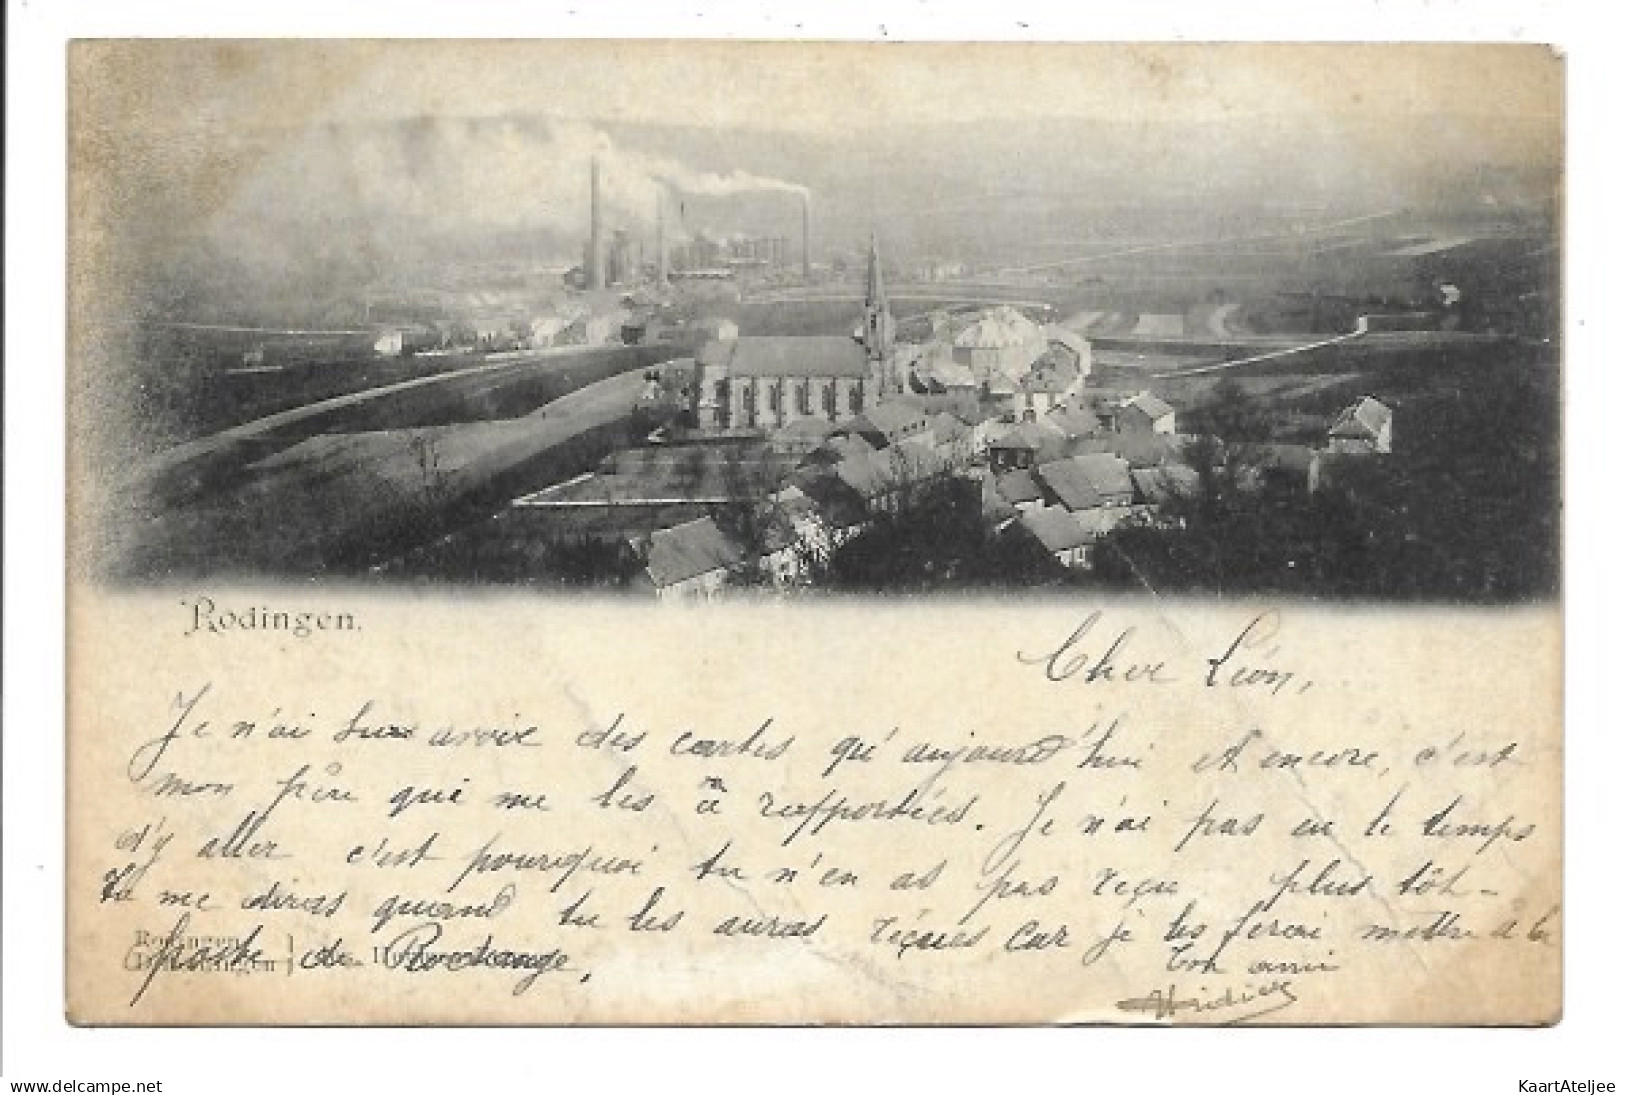 Rodingen.
Cher Léon,
Je n'ai su avoir des cartes qu'aujourd'hui et encore, c'est
mon père qui me les a rapportées. Je n'ai pas eu le temps
d'y aller c'est pourquoi tu n'en as pas reçu plus tôt -
Tu me diras quand tu les auras reçues car je les ferai mettre à la
poste de Rodange.
Ton ami
Rodingen
www.delcampe.net
KaartAteljee